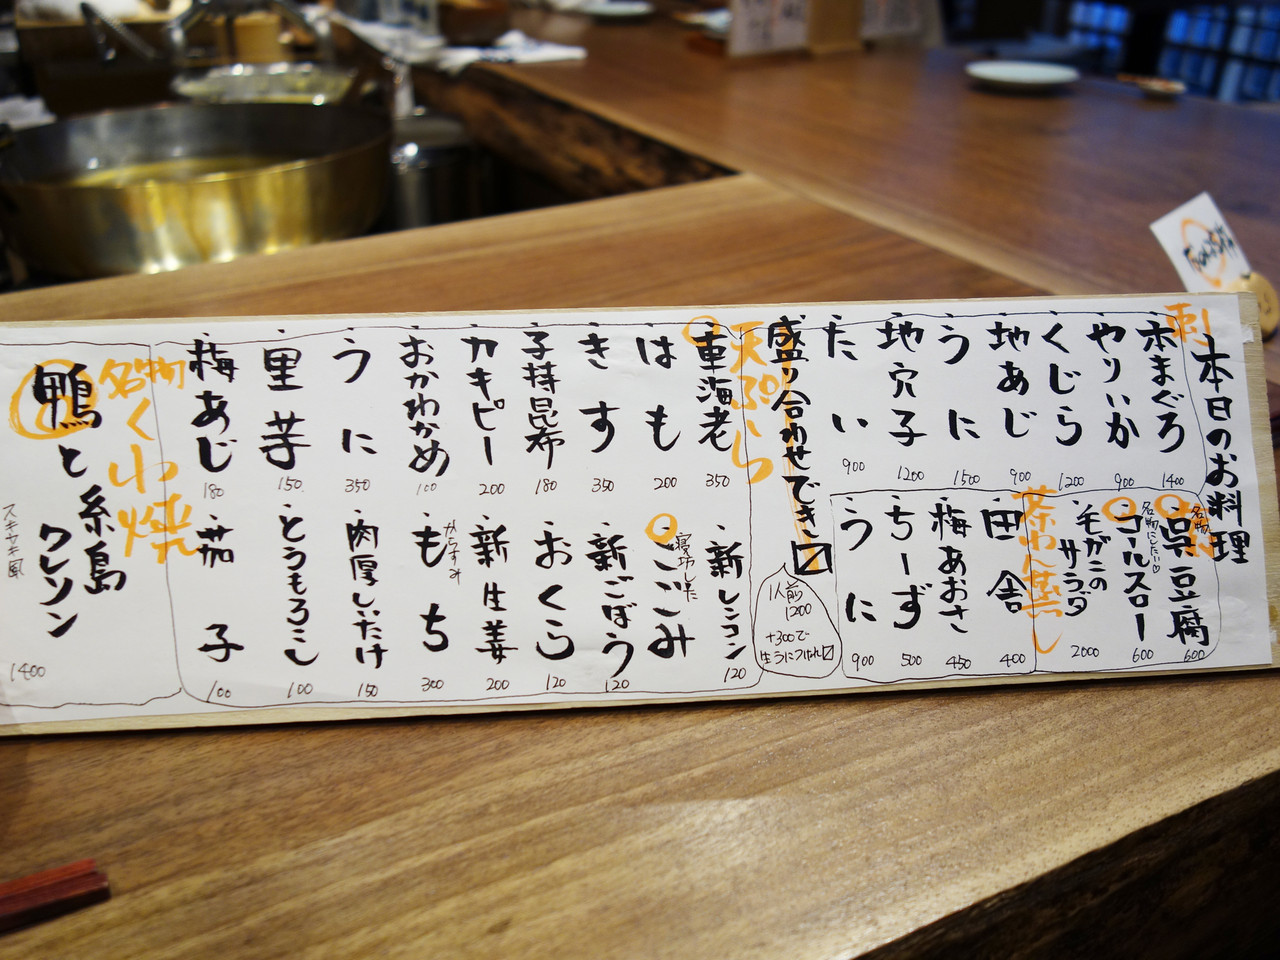 本日のお料理
刺
本まぐろ 1400
やりいか 900
くじら 1200
地あじ 900
うに 1500
地穴子 1200
たい 900
盛り合わせできます
1人前
1200
+300で
生うにつけれます
名物
呉豆腐 600
名物にしたい♡
コールスロー 600
毛がにの
サラダ 2000
茶わん蒸し
田舎 400
梅あおさ 450
ちーず 500
うに 900
天ぷら
車海老 350
はも 200
きす 350
子持昆布 180
カキピー 200
おかわかめ 100
うに 350
里芋 150
梅あじ 180
新レンコン 120
寝坊した
こごみ
新ごぼう 120
おくら 120
新生姜 200
からすみ
もち 300
肉厚しいたけ 150
とうもろこし 100
茄子 100
名物
くわ焼
鴨と糸島
クレソン
スキヤキ風
1400